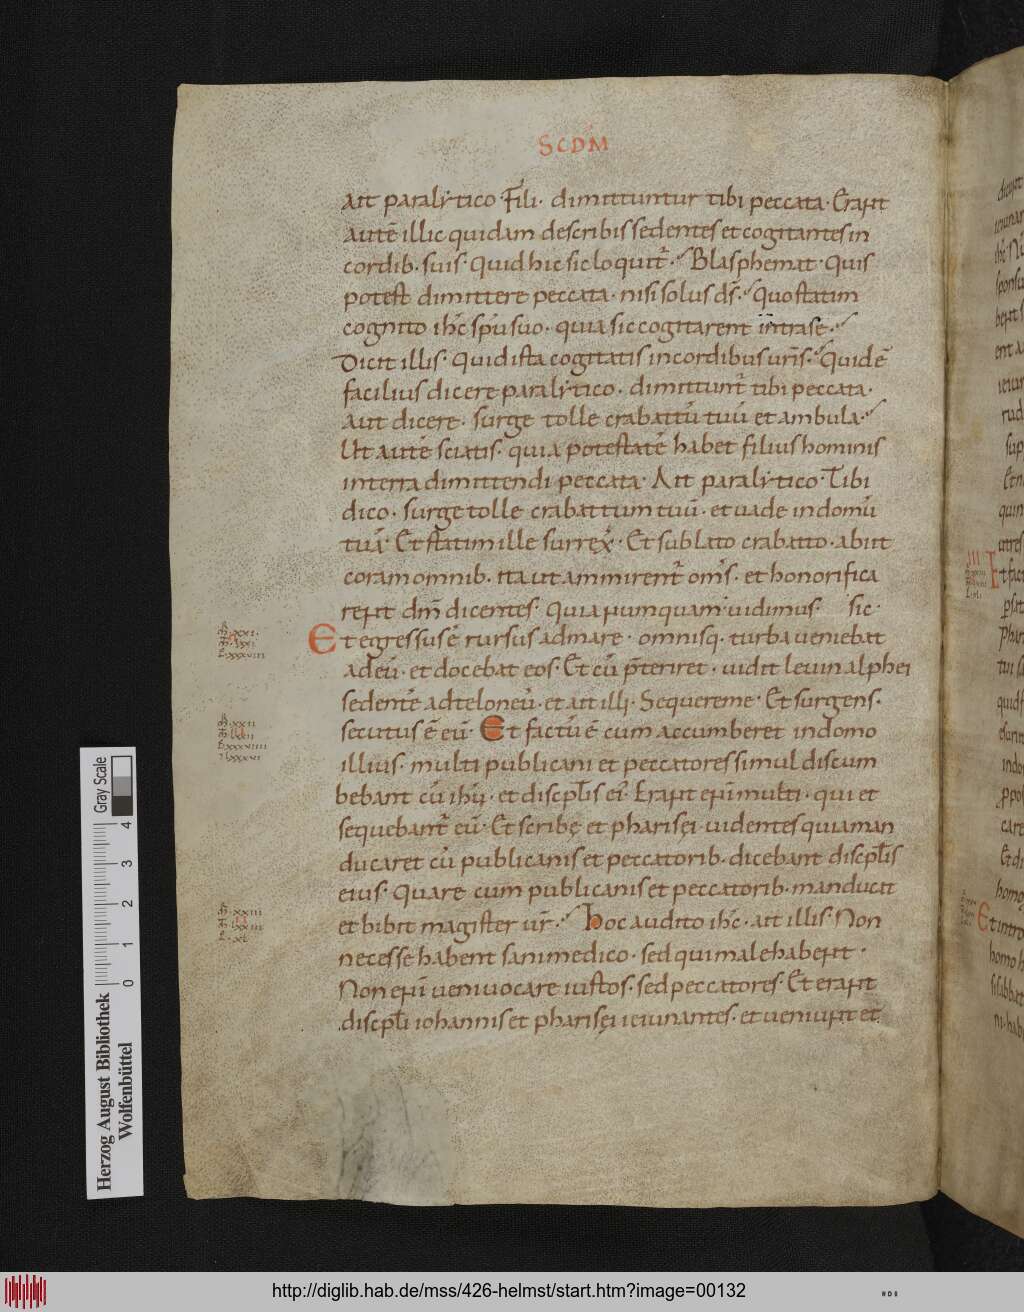 SCDM
ait paralytico· Fili· dimittuntur tibi peccata· Erant
autē illic quidam describis sedentes et cogitantes in
cordib· suis· Quid hic sic loquit̄· Blasphemat· Quis
potest dimittere peccata· nisi solus d̄s· Quo statim
cognito ih̄c sp̄u suo· quia sic cogitarent intra se·
Dicit illis· Quid ista cogitatis in cordibus ur̄is· Quid ē
facilius dicere paralytico· dimittunt̄ tibi peccata·
Aut dicere· surge tolle crabattū tuū et ambula·
Ut autē sciatis· quia potestatē habet filius hominis
in terra dimittendi peccata· Ait paralytico· Tibi
dico· surge tolle crabattum tuū· et uade in domū
tuā· Et statim ille surrex̄· Et sublato crabatto· abiit
coram omnib· ita ut ammirent̄ om̄s· et honorifica
rent dm̄ dicentes· Quia numquam uidimus sic·
Et egressus ē rursus ad mare· omnisq· turba ueniebat
ad eū· et docebat eos· Et cū p̄teriret· uidit leuin alphei
sedentē ad teloneū· et ait illi· Sequere me· Et surgens·
secutus ē eū· Et factū ē cum accumberet in domo
illius· multi publicani et peccatores simul discum
bebant cū ih̄u· et discpl̄is ei· Erant enī multi· qui et
sequebant̄ eū· Et scribę et pharisęi uidentes quia man
ducaret cū publicanis et peccatorib· dicebant discpl̄is
eius· Quare cum publicanis et peccatorib· manducat
et bibit magister ur̄· Hoc audito ih̄c· ait illis· Non
necesse habent sani medico· sed qui male habent·
Non enī ueni uocare iustos· sed peccatores· Et erant
discpl̄i iohannis et pharisęi ieiunantes· et ueniunt et
Gray Scale
0 1 2 3 4
Herzog August Bibliothek
Wolfenbüttel
http://diglib.hab.de/mss/426-helmst/start.htm?image=00132